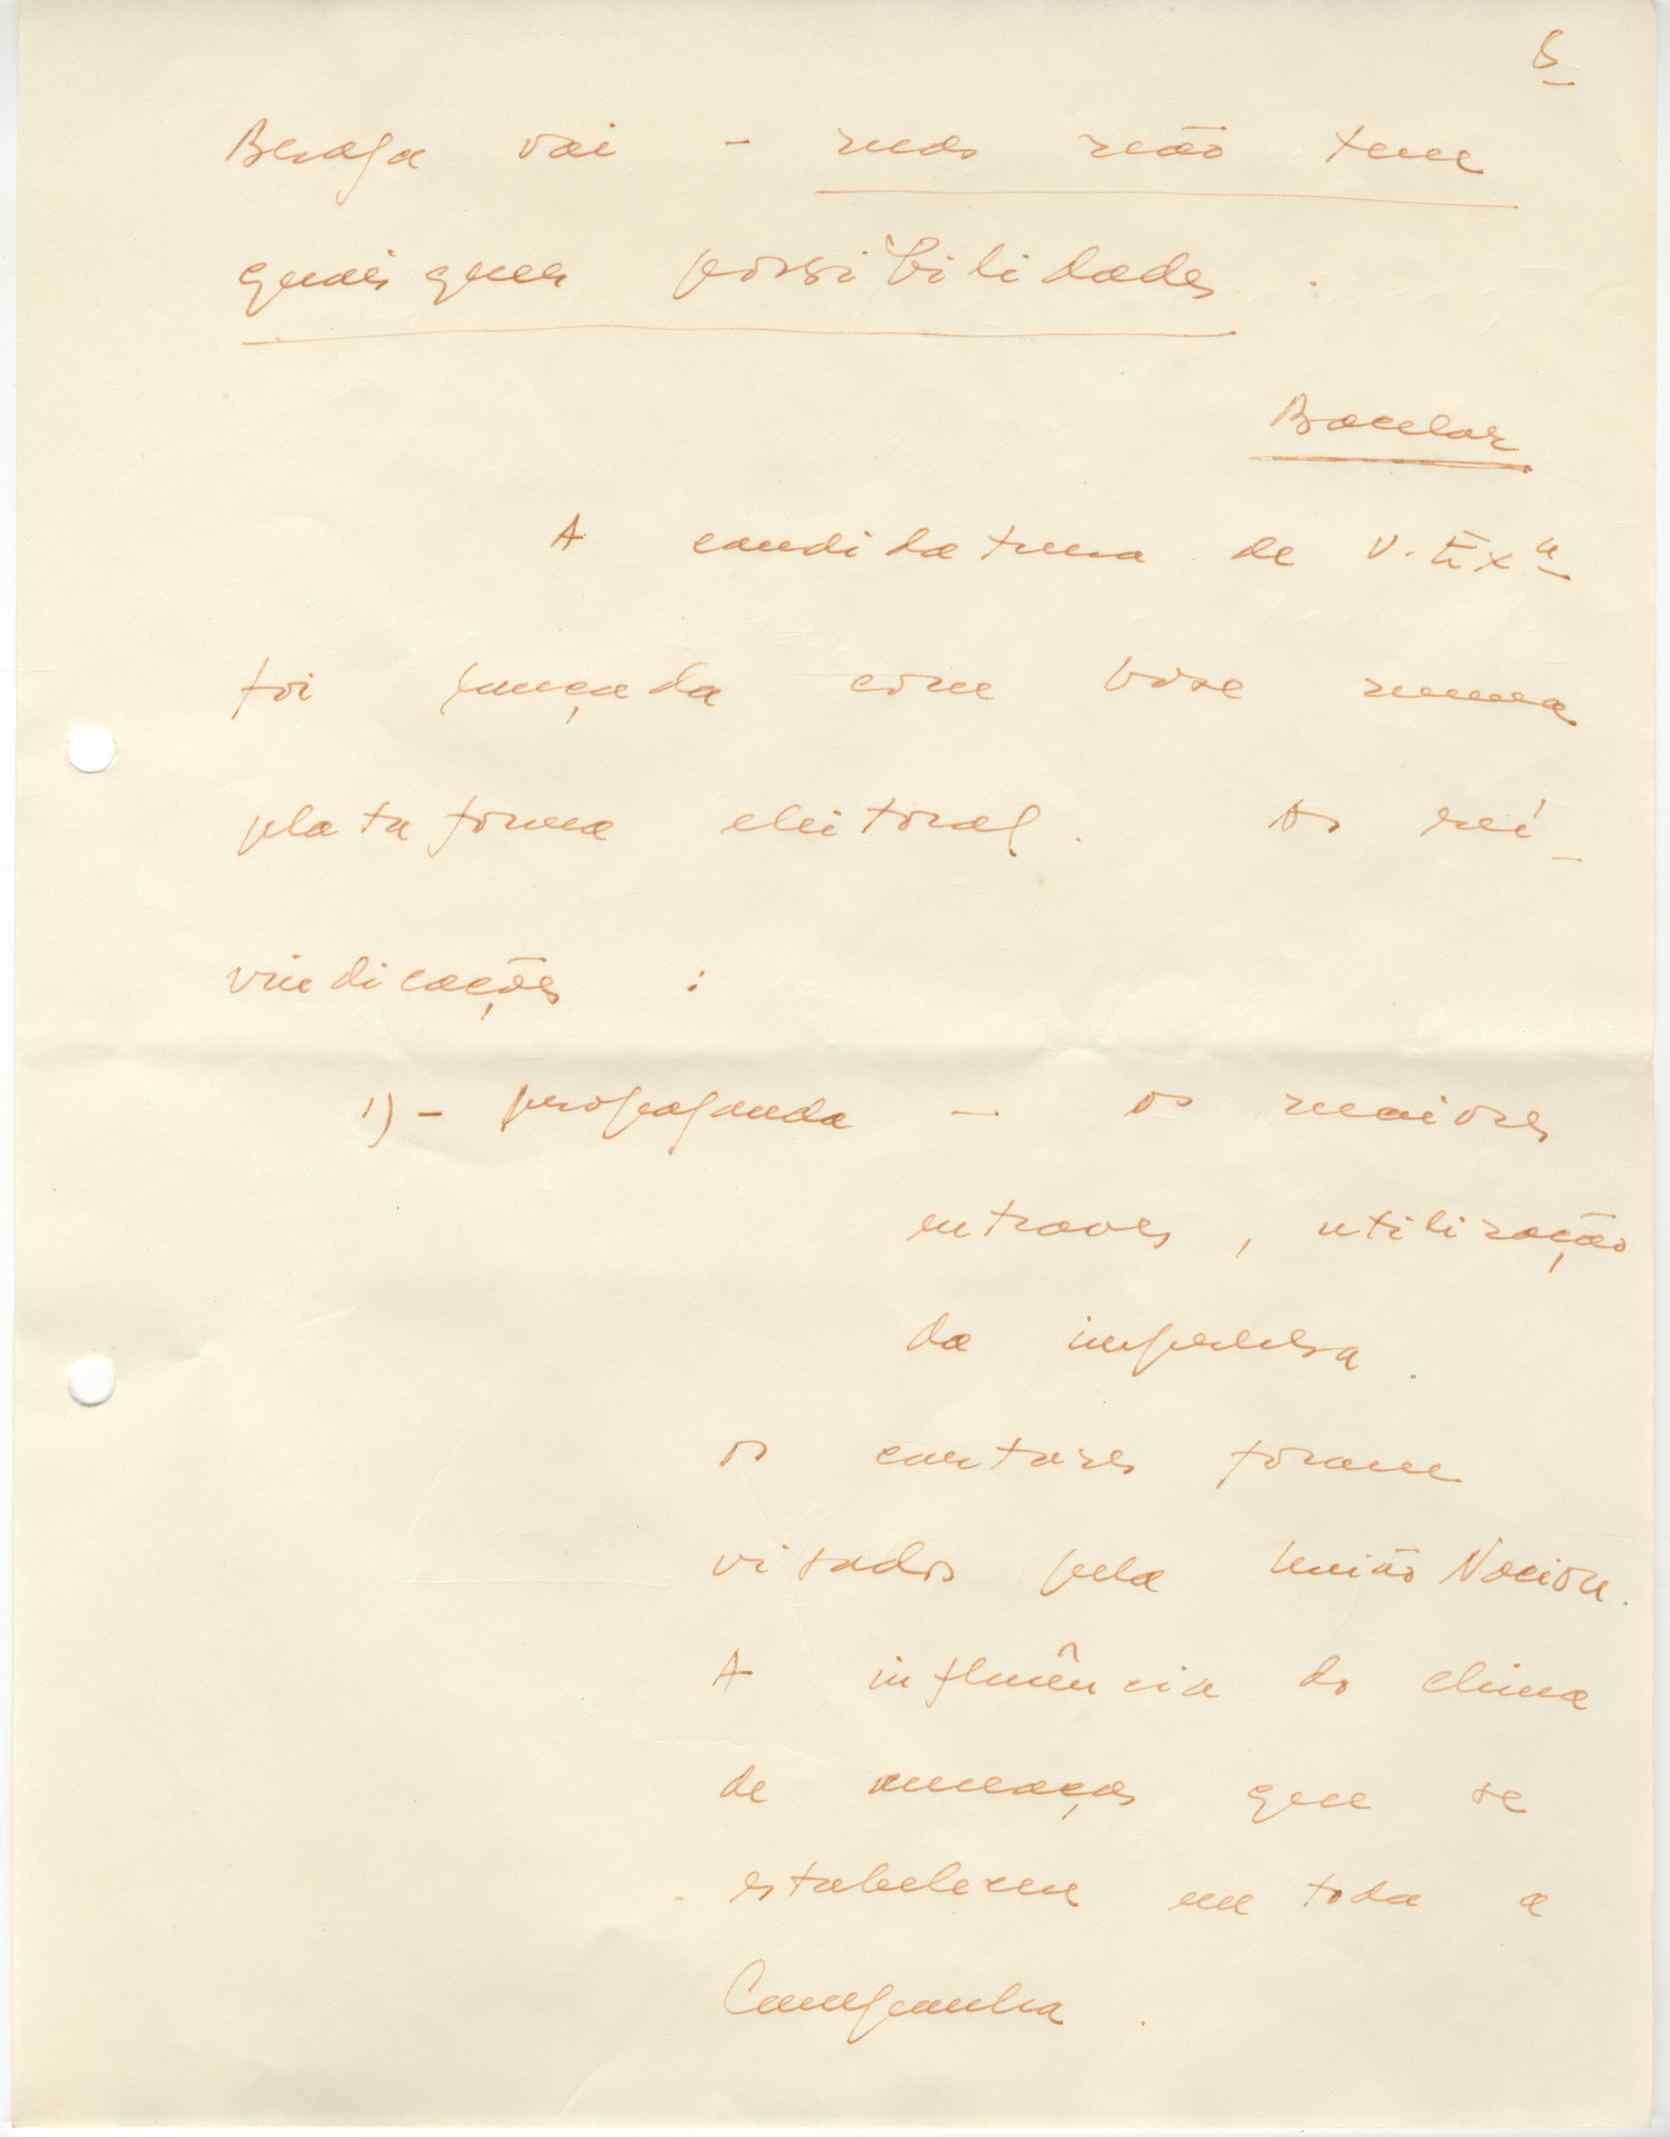 6
Braga vai – mas não tem
quaisquer possibilidades.
Bacelar
A candidatura de V. Exª
foi lançada com base numa
plataforma eleitoral. As rei-
vindicações :
1) – propaganda – os maiores
entraves, utilização
da imprensa.
os cartazes foram
visados pela União Nacion.
A influência do clima
de ameaças que se
estabeleceu em toda a
Campanha.